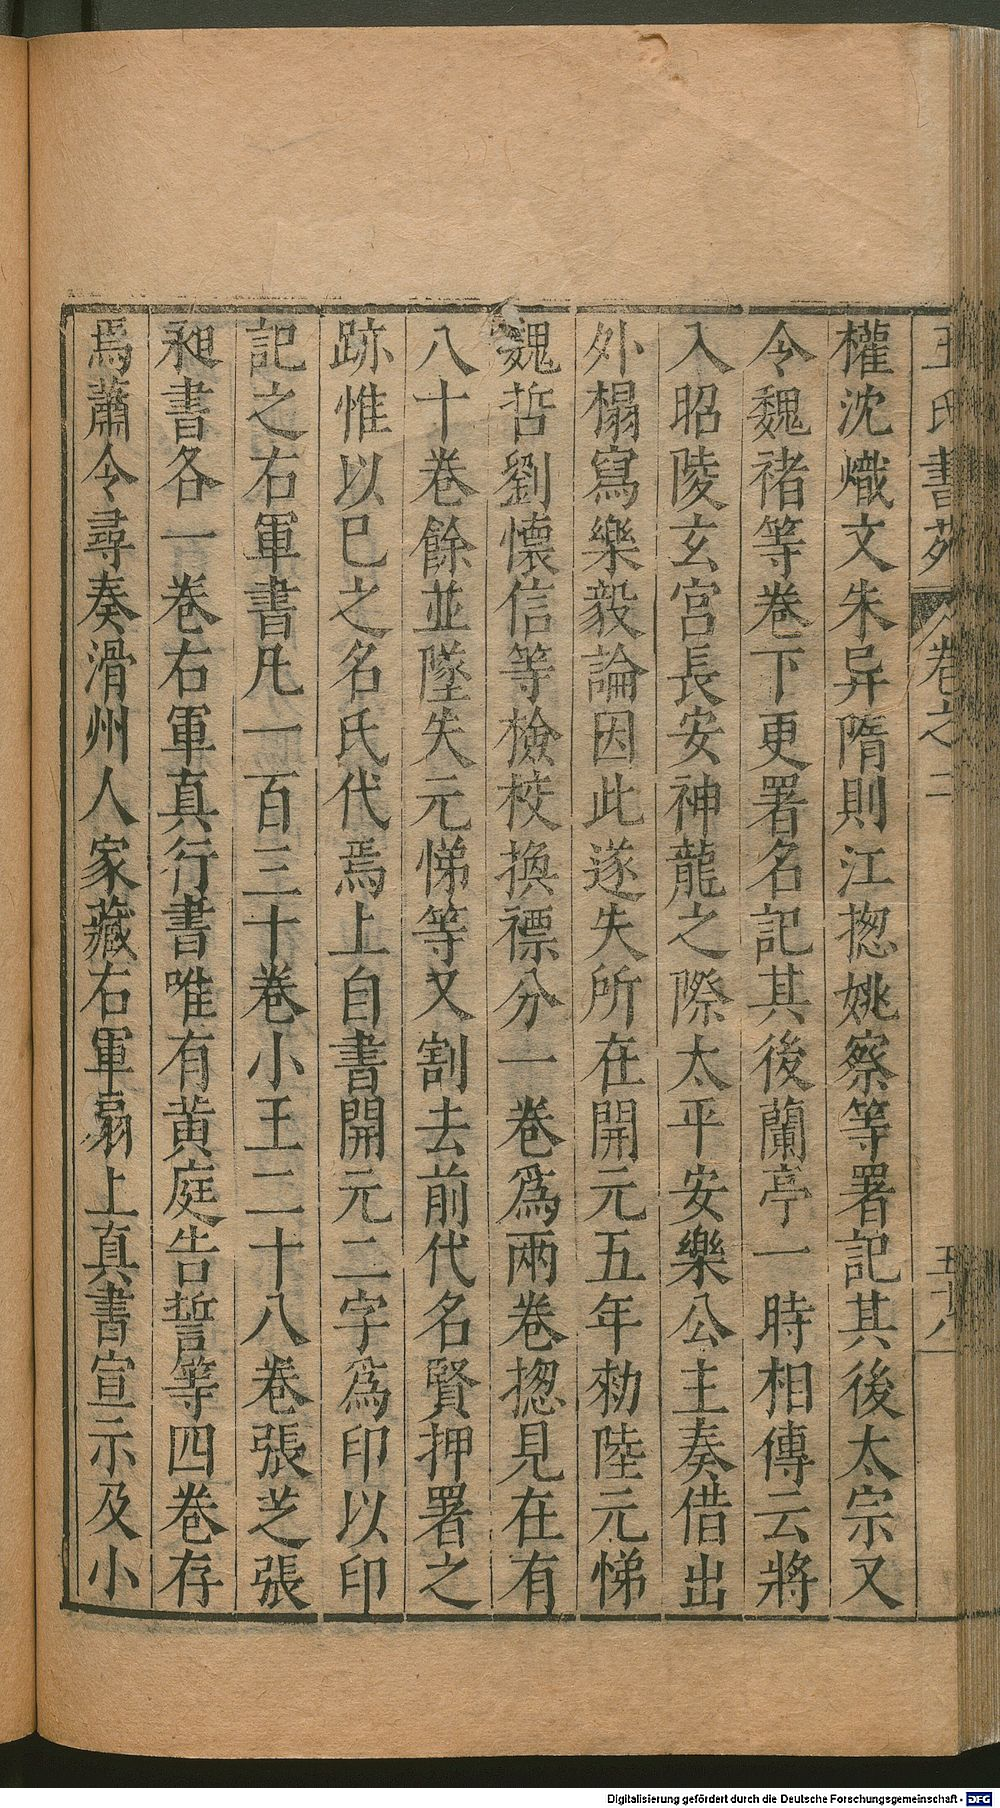 王氏書苑 卷之二 五十八
權沈熾文朱异隋則江揔姚察等署記其後太宗又
令魏褚等卷下更署名記其後蘭亭一時相傳云將
入昭陵玄宮長安神龍之際太平安樂公主奏借出
外榻寫樂毅論因此遂失所在開元五年勑陸元悌
魏哲劉懷信等檢校換褾分一卷爲兩卷揔見在有
八十卷餘並墜失元悌等又割去前代名賢押署之
跡惟以已之名氏代焉上自書開元二字爲印以印
記之右軍書凡一百三十卷小王二十八卷張芝張
昶書各一卷右軍真行書唯有黄庭告誓等四卷存
焉蕭令尋奏滑州人家藏右軍扇上真書宣示及小
Digitalisierung gefördert durch die Deutsche Forschungsgemeinschaft - DFG